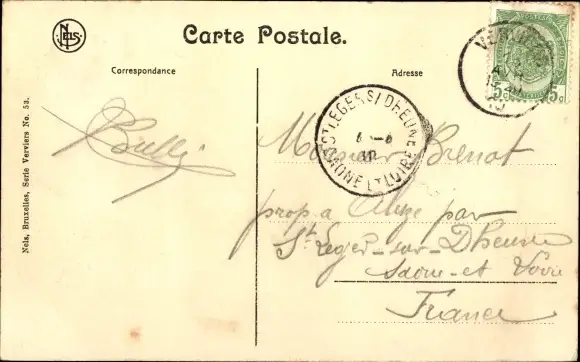 NELS
Carte Postale.
Correspondance
Adresse
Nels, Bruxelles, Serie Verviers No. 53.
5c 5c
ST LEGER S/ DHEUNE
SAONE ET LOIRE
Monsieur Brenot
prop a par
St Leger-sur-Dheune
Saone-et Loire
France